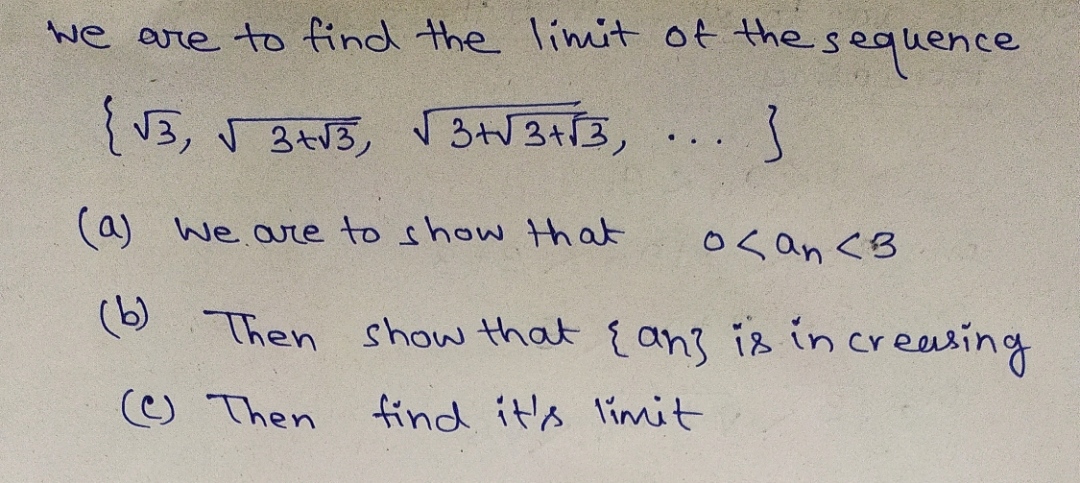 we are to find the limit of the sequence
{ √3, √3+√3, √3+√3+√3, ... }
(a) we are to show that 0<an<3
(b) Then show that {an} is increasing
(c) Then find it's limit